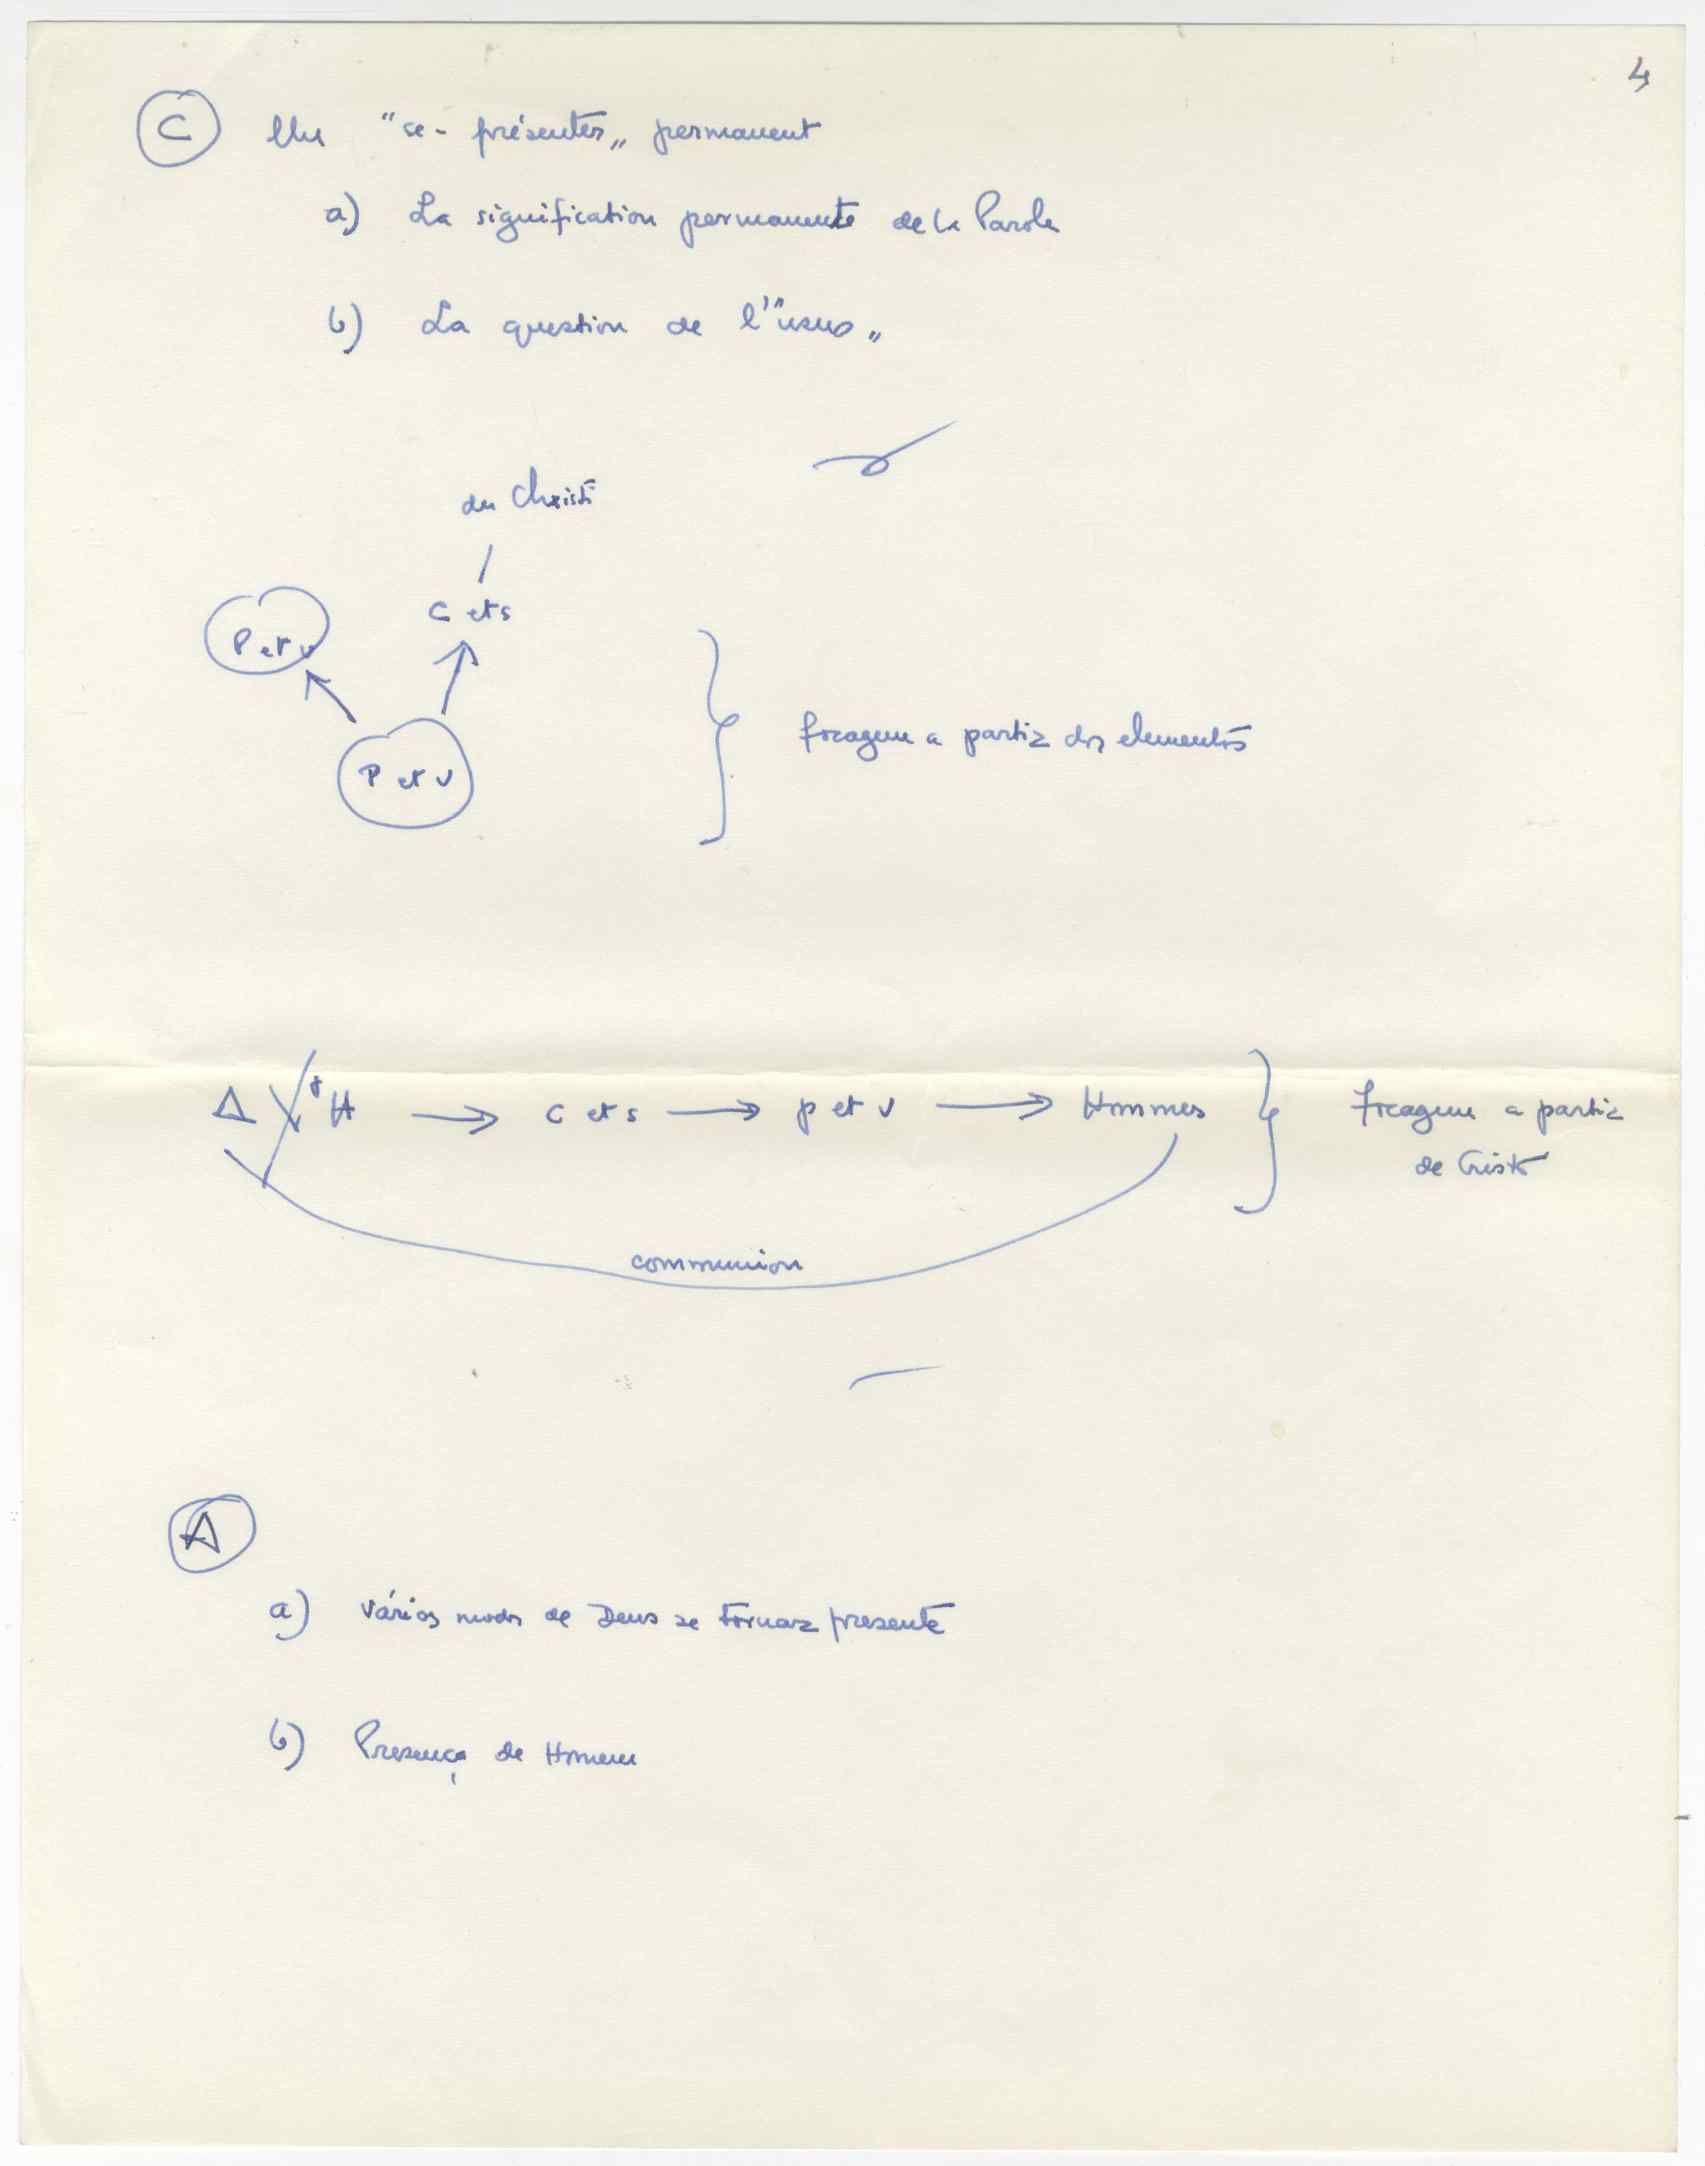 4
C Un "se-présenter" permanent
a) La signification permanente de la Parole
b) La question de l'"usus"
du Christ
C et s
P et v
P et v
focagem a partir dos elementos
Δ H → C et s → p et v → Hommes
focagem a partir
de Cristo
communion
A
a) Vários modos de Deus se tornar presente
b) Presença de Homem